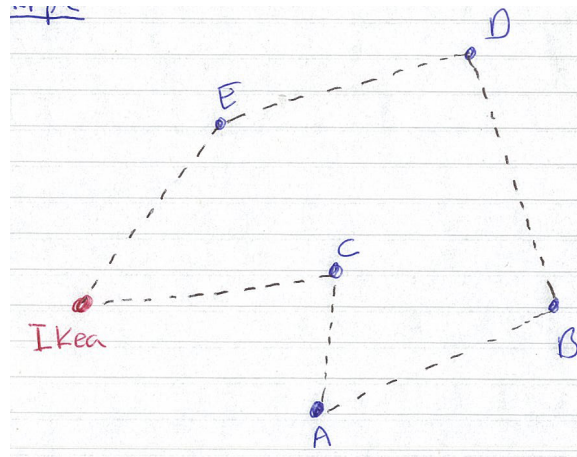 D
E
C
Ikea
B
A